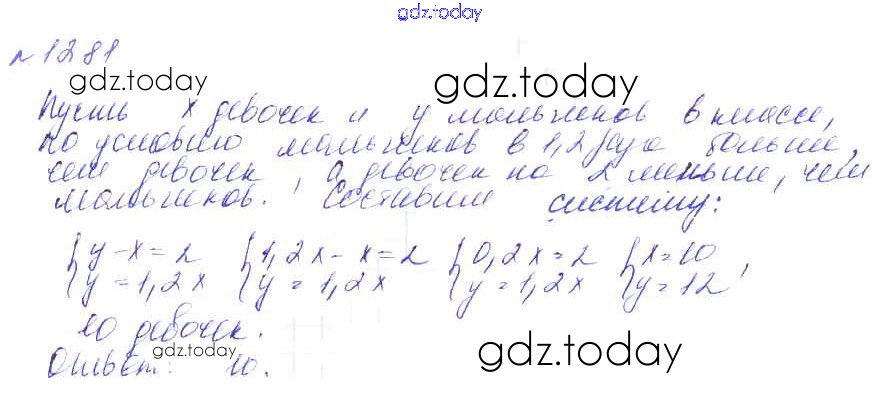 gdz.today
№1281
gdz.today gdz.today
Пусть x девочек и y мальчиков в классе,
по условию мальчиков в 1,2 раза больше,
чем девочек, а девочек на 2 меньше, чем
мальчиков. Составим систему:
{y-x=2 {1,2x-x=2 {0,2x=2 {x=10
{y=1,2x {y=1,2x {y=1,2x {y=12,
10 девочек.
gdz.today gdz.today
Ответ: 10.